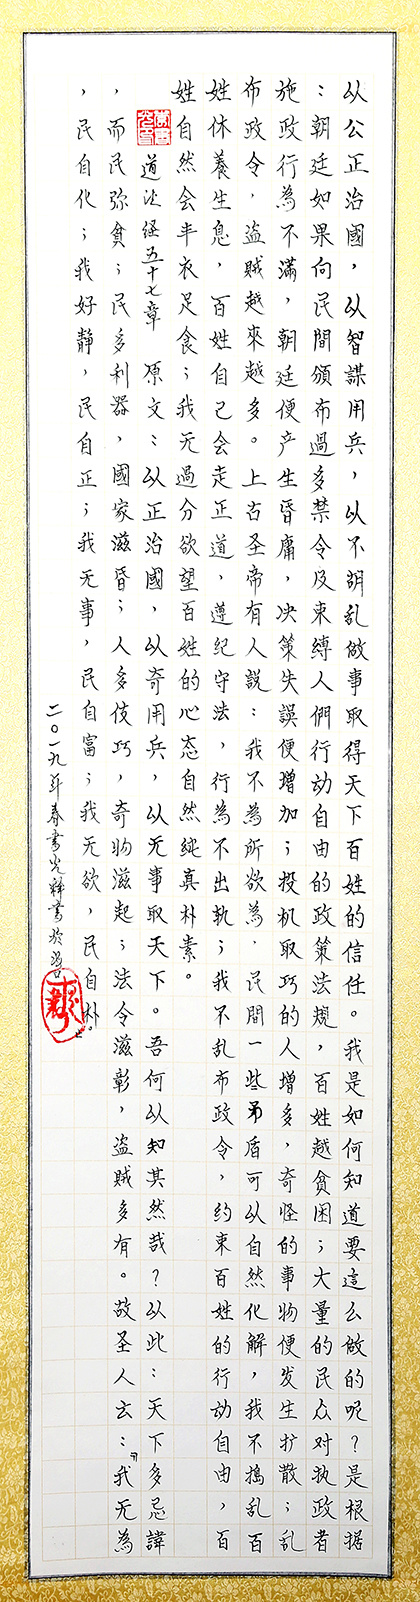 以公正治國，以智謀用兵，以不胡乱做事取得天下百姓的信任。我是如何知道要這么做的呢？是根据
：朝廷如果向民間頒布過多禁令及束縛人們行动自由的政策法規，百姓越貧困；大量的民众对执政者
施政行為不滿，朝廷便产生昏庸，决策失誤便增加；投机取巧的人增多，奇怪的事物便发生扩散；乱
布政令，盗賊越來越多。上古圣帝有人説：我不為所欲為，民間一些矛盾可以自然化解，我不搗乱百
姓休養生息，百姓自己会走正道，遵纪守法，行為不出軌；我不乱布政令，约束百姓的行动自由，百
姓自然会丰衣足食；我无過分欲望百姓的心态自然純真朴素。
道德經五十七章 原文：以正治國，以奇用兵，以无事取天下。吾何以知其然哉？以此：天下多忌諱
，而民弥貧；民多利器，國家滋昏；人多伎巧，奇物滋起；法令滋彰，盗賊多有。故圣人云：我无為
，民自化；我好静，民自正；我无事，民自富；我无欲，民自朴。
二〇一九年春書